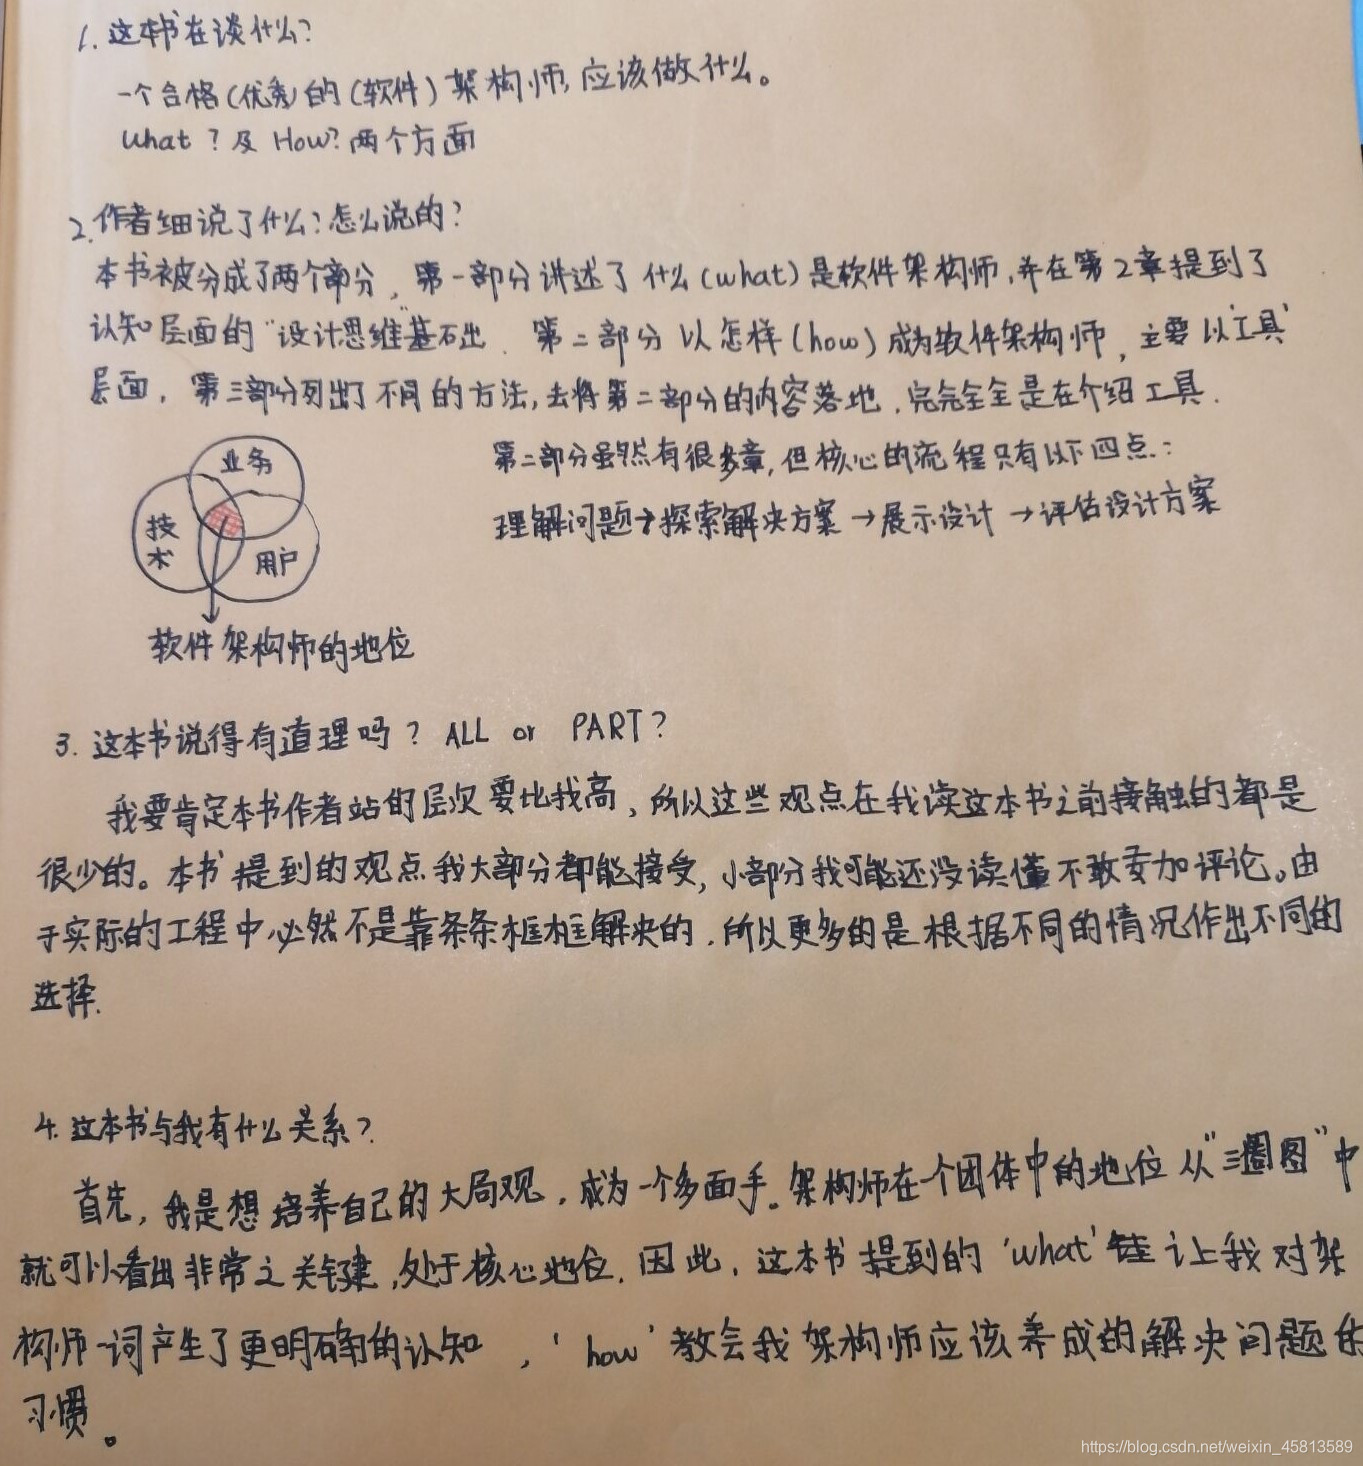 1. 这本书在谈什么?
一个合格(优秀)的(软件)架构师,应该做什么。
What ? 及 How? 两个方面
2. 作者细说了什么?怎么说的?
本书被分成了两个部分, 第一部分讲述了什么(what)是软件架构师,并在第2章提到了
认知层面的"设计思维"基础. 第二部分以怎样(how)成为软件架构师, 主要以'工具'
层面, 第三部分列出了不同的方法,去将第二部分的内容落地,完完全全是在介绍工具.
第二部分虽然有很多章,但核心的流程只有以下四点:
理解问题→探索解决方案→展示设计→评估设计方案
业务
技术
用户
软件架构师的地位
3. 这本书说得有道理吗? ALL or PART?
我要肯定本书作者站的层次要比我高,所以这些观点在我读这本书之前接触的都是
很少的。本书提到的观点我大部分都能接受,小部分我可能还没读懂不敢妄加评论。由
于实际的工程中必然不是靠条条框框解决的,所以更多的是根据不同的情况作出不同的
选择.
4. 这本书与我有什么关系?
首先,我是想培养自己的大局观,成为一个多面手。架构师在一个团体中的地位从"三圈图"中
就可以看出非常之关键,处于核心地位. 因此, 这本书提到的'what' 让我对架
构师一词产生了更明确的认知 ,'how'教会我架构师应该养成的解决问题的
习惯。
https://blog.csdn.net/weixin_45813589